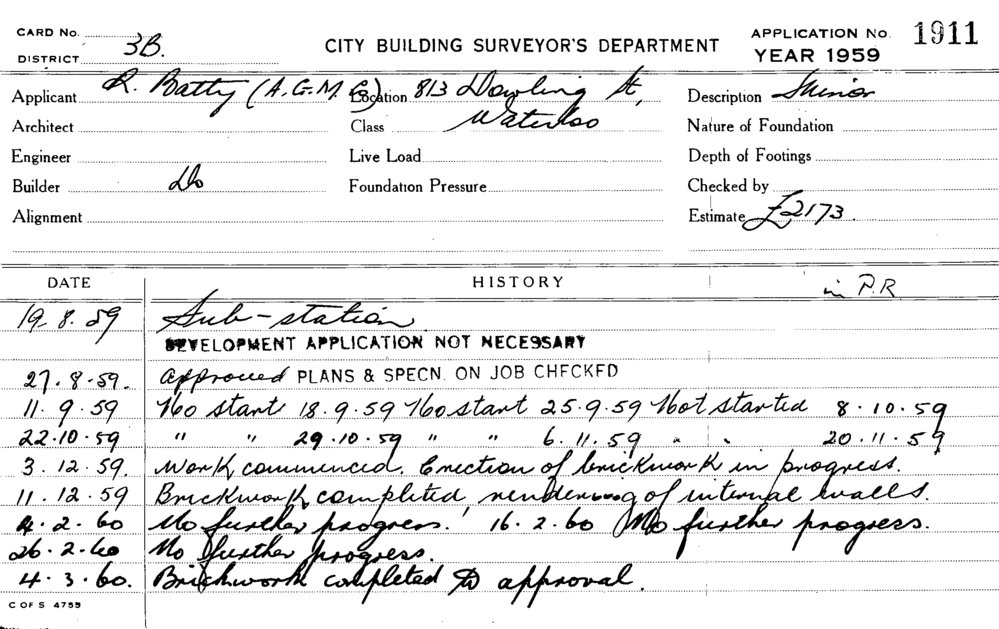 CARD No.
CITY BUILDING SURVEYOR'S DEPARTMENT
APPLICATION No. 1911
DISTRICT 3B.
YEAR 1959
Applicant R. Batty (A.G.M.C.) Location 813 Dowling St, Description Minor
Architect Class Waterloo Nature of Foundation
Engineer Live Load Depth of Footings
Builder Do Foundation Pressure Checked by
Alignment Estimate £2173.
DATE HISTORY in P.R.
19. 8. 59 Sub-station
DEVELOPMENT APPLICATION NOT NECESSARY
27. 8. 59. Approved PLANS & SPECN. ON JOB CHECKED
11. 9. 59 No start 18.9.59 No start 25.9.59 Not started 8.10.59
22.10.59 " " 29.10.59 " " 6.11.59 " " 20.11.59
3. 12. 59. Work commenced. Erection of brickwork in progress.
11. 12. 59 Brickwork completed rendering of internal walls.
4. 2. 60 No further progress. 16. 2. 60 No further progress.
26. 2. 60 No further progress.
4. 3. 60. Brickwork completed to approval.
C OF S 4755